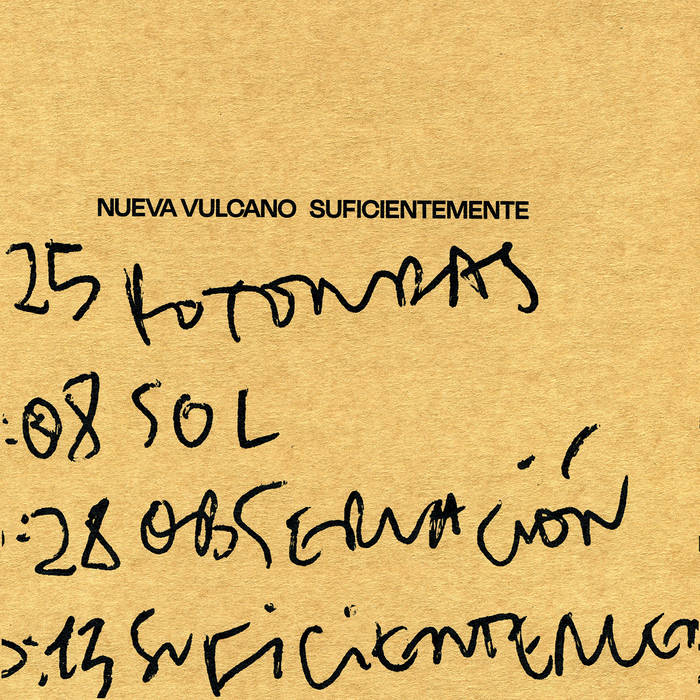 NUEVA VULCANO SUFICIENTEMENTE
25 ROTONDAS
:08 SOL
:28 OBSERVACIÓN
:13 SUFICIENTEMEN